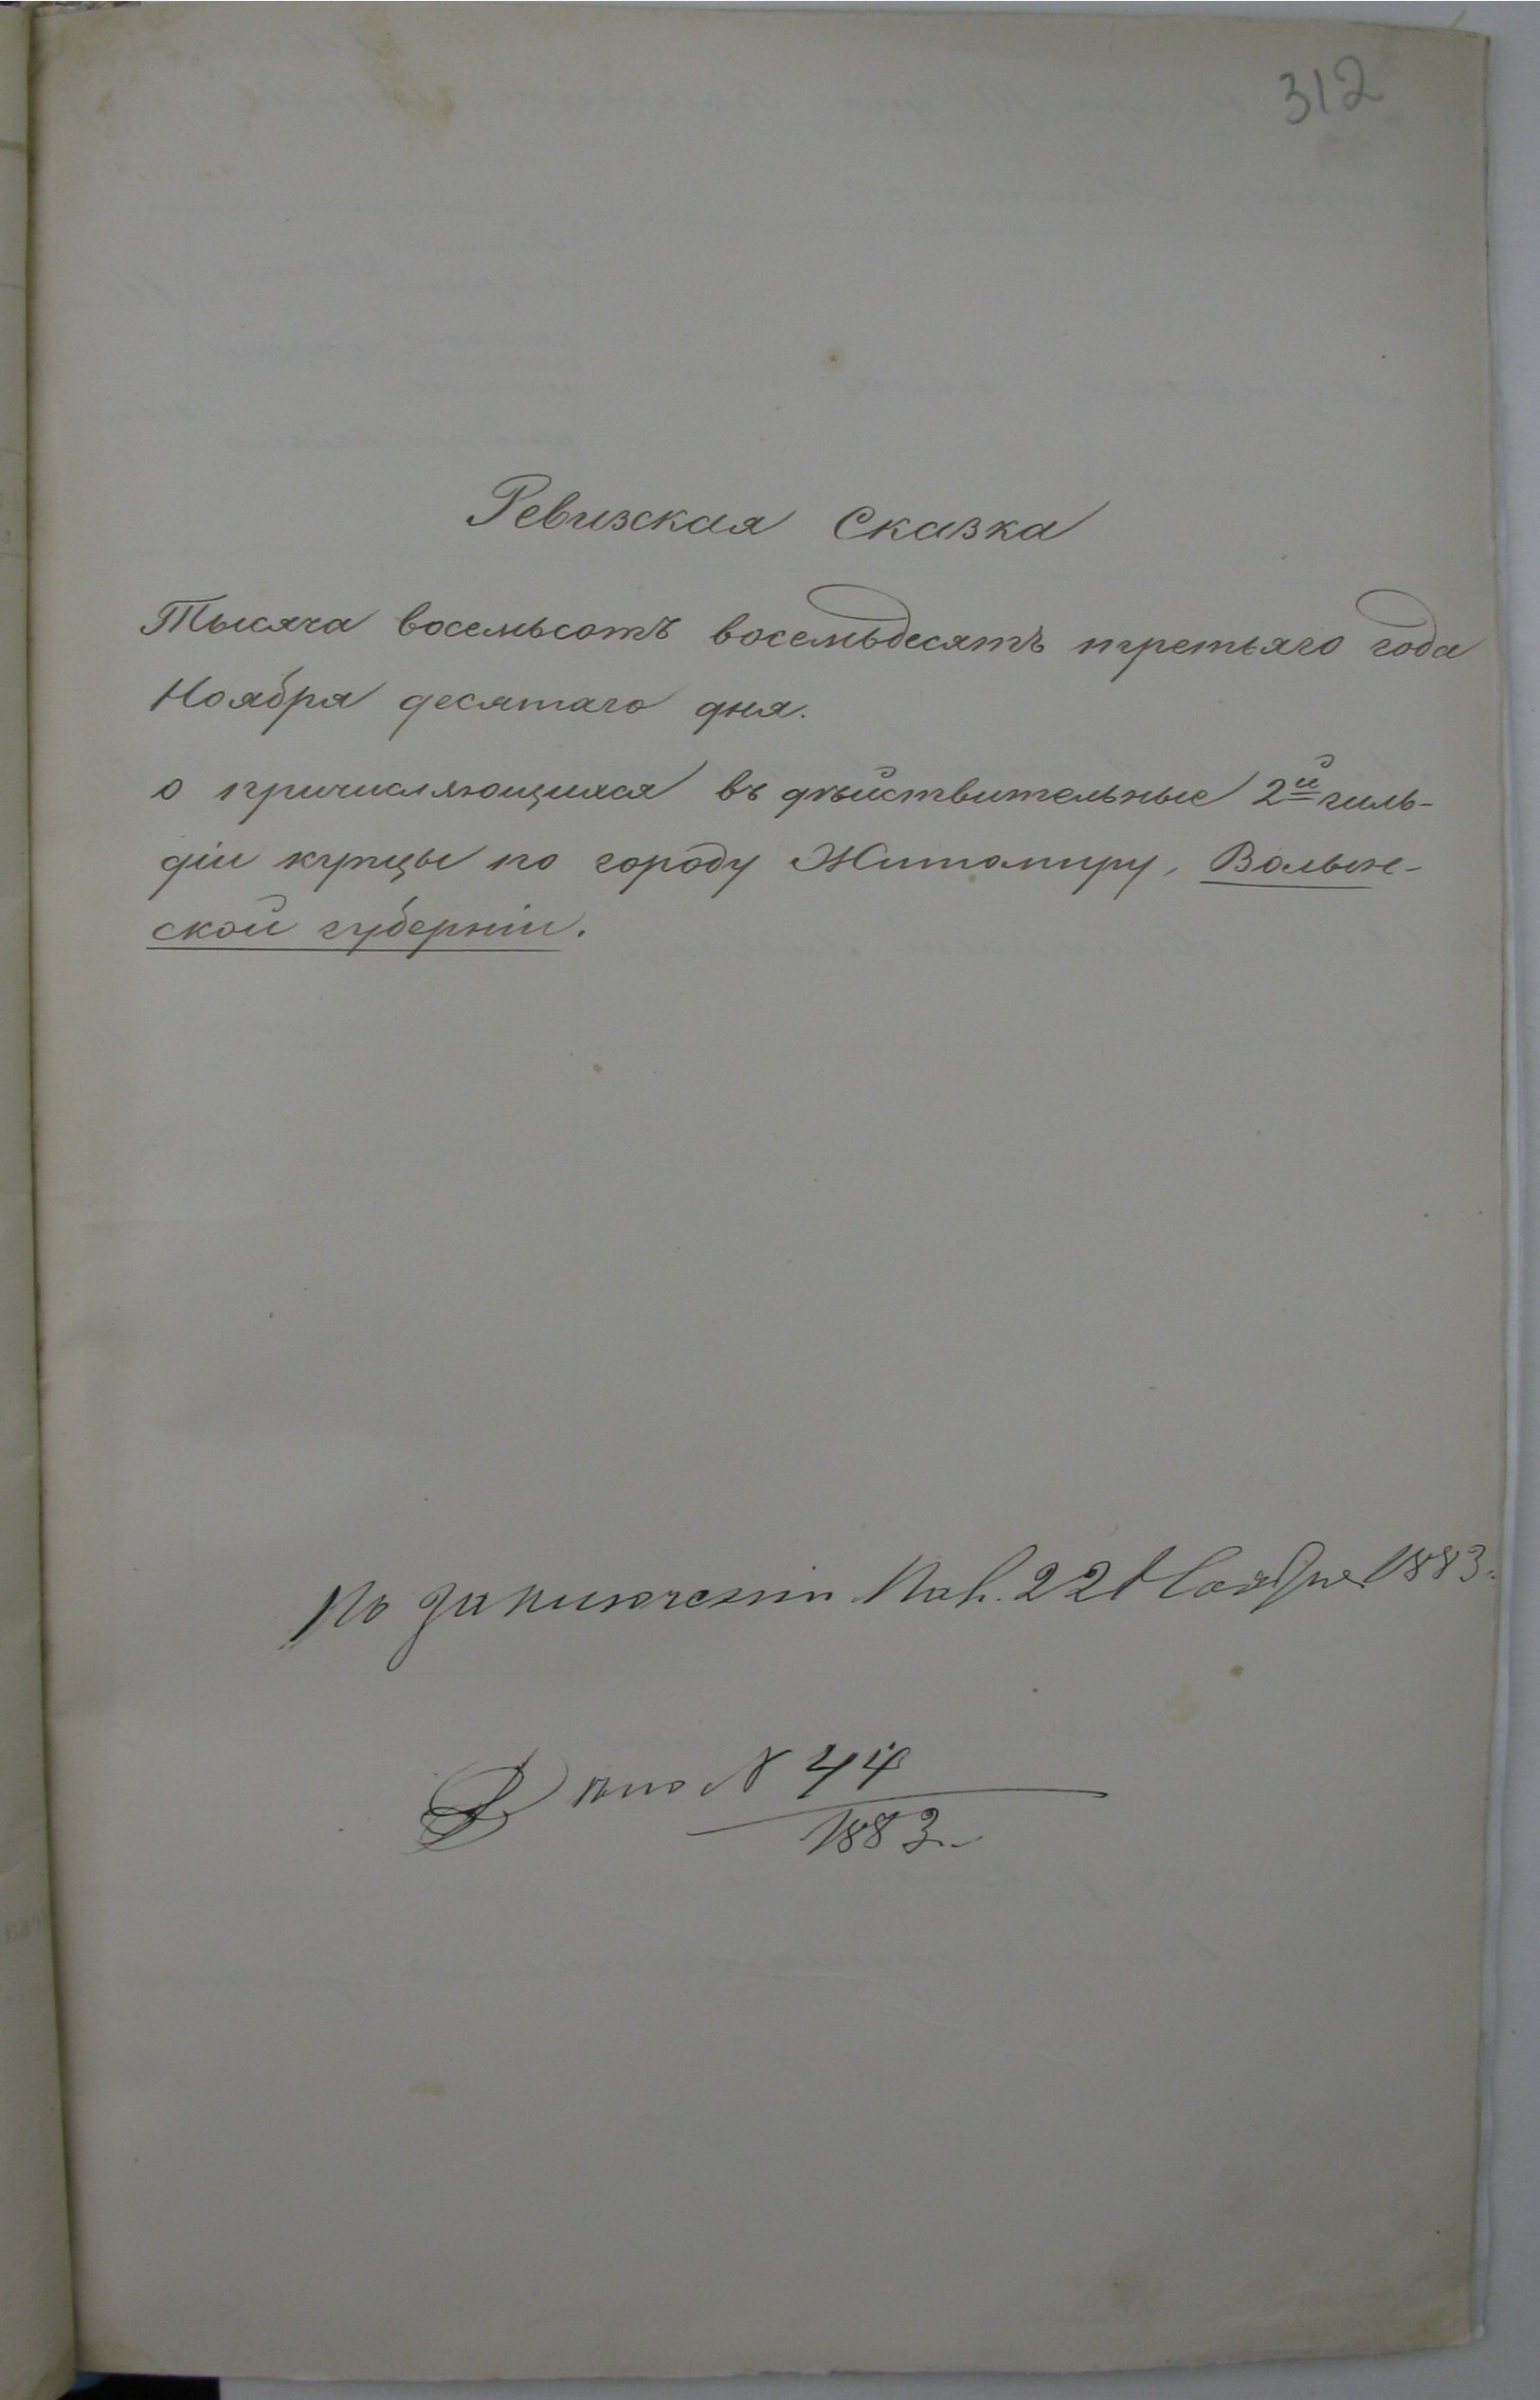 312
Ревизская Сказка
Тысяча восемьсотъ восемьдесятъ третьяго года
Ноября десятаго дня.
о причисляющихся въ дѣйствительные 2й гиль-
діи купцы по городу Житомиру, Волын-
ской губерніи.
По заключенію 22 Ноября 1883.
Дѣло № 44
1883